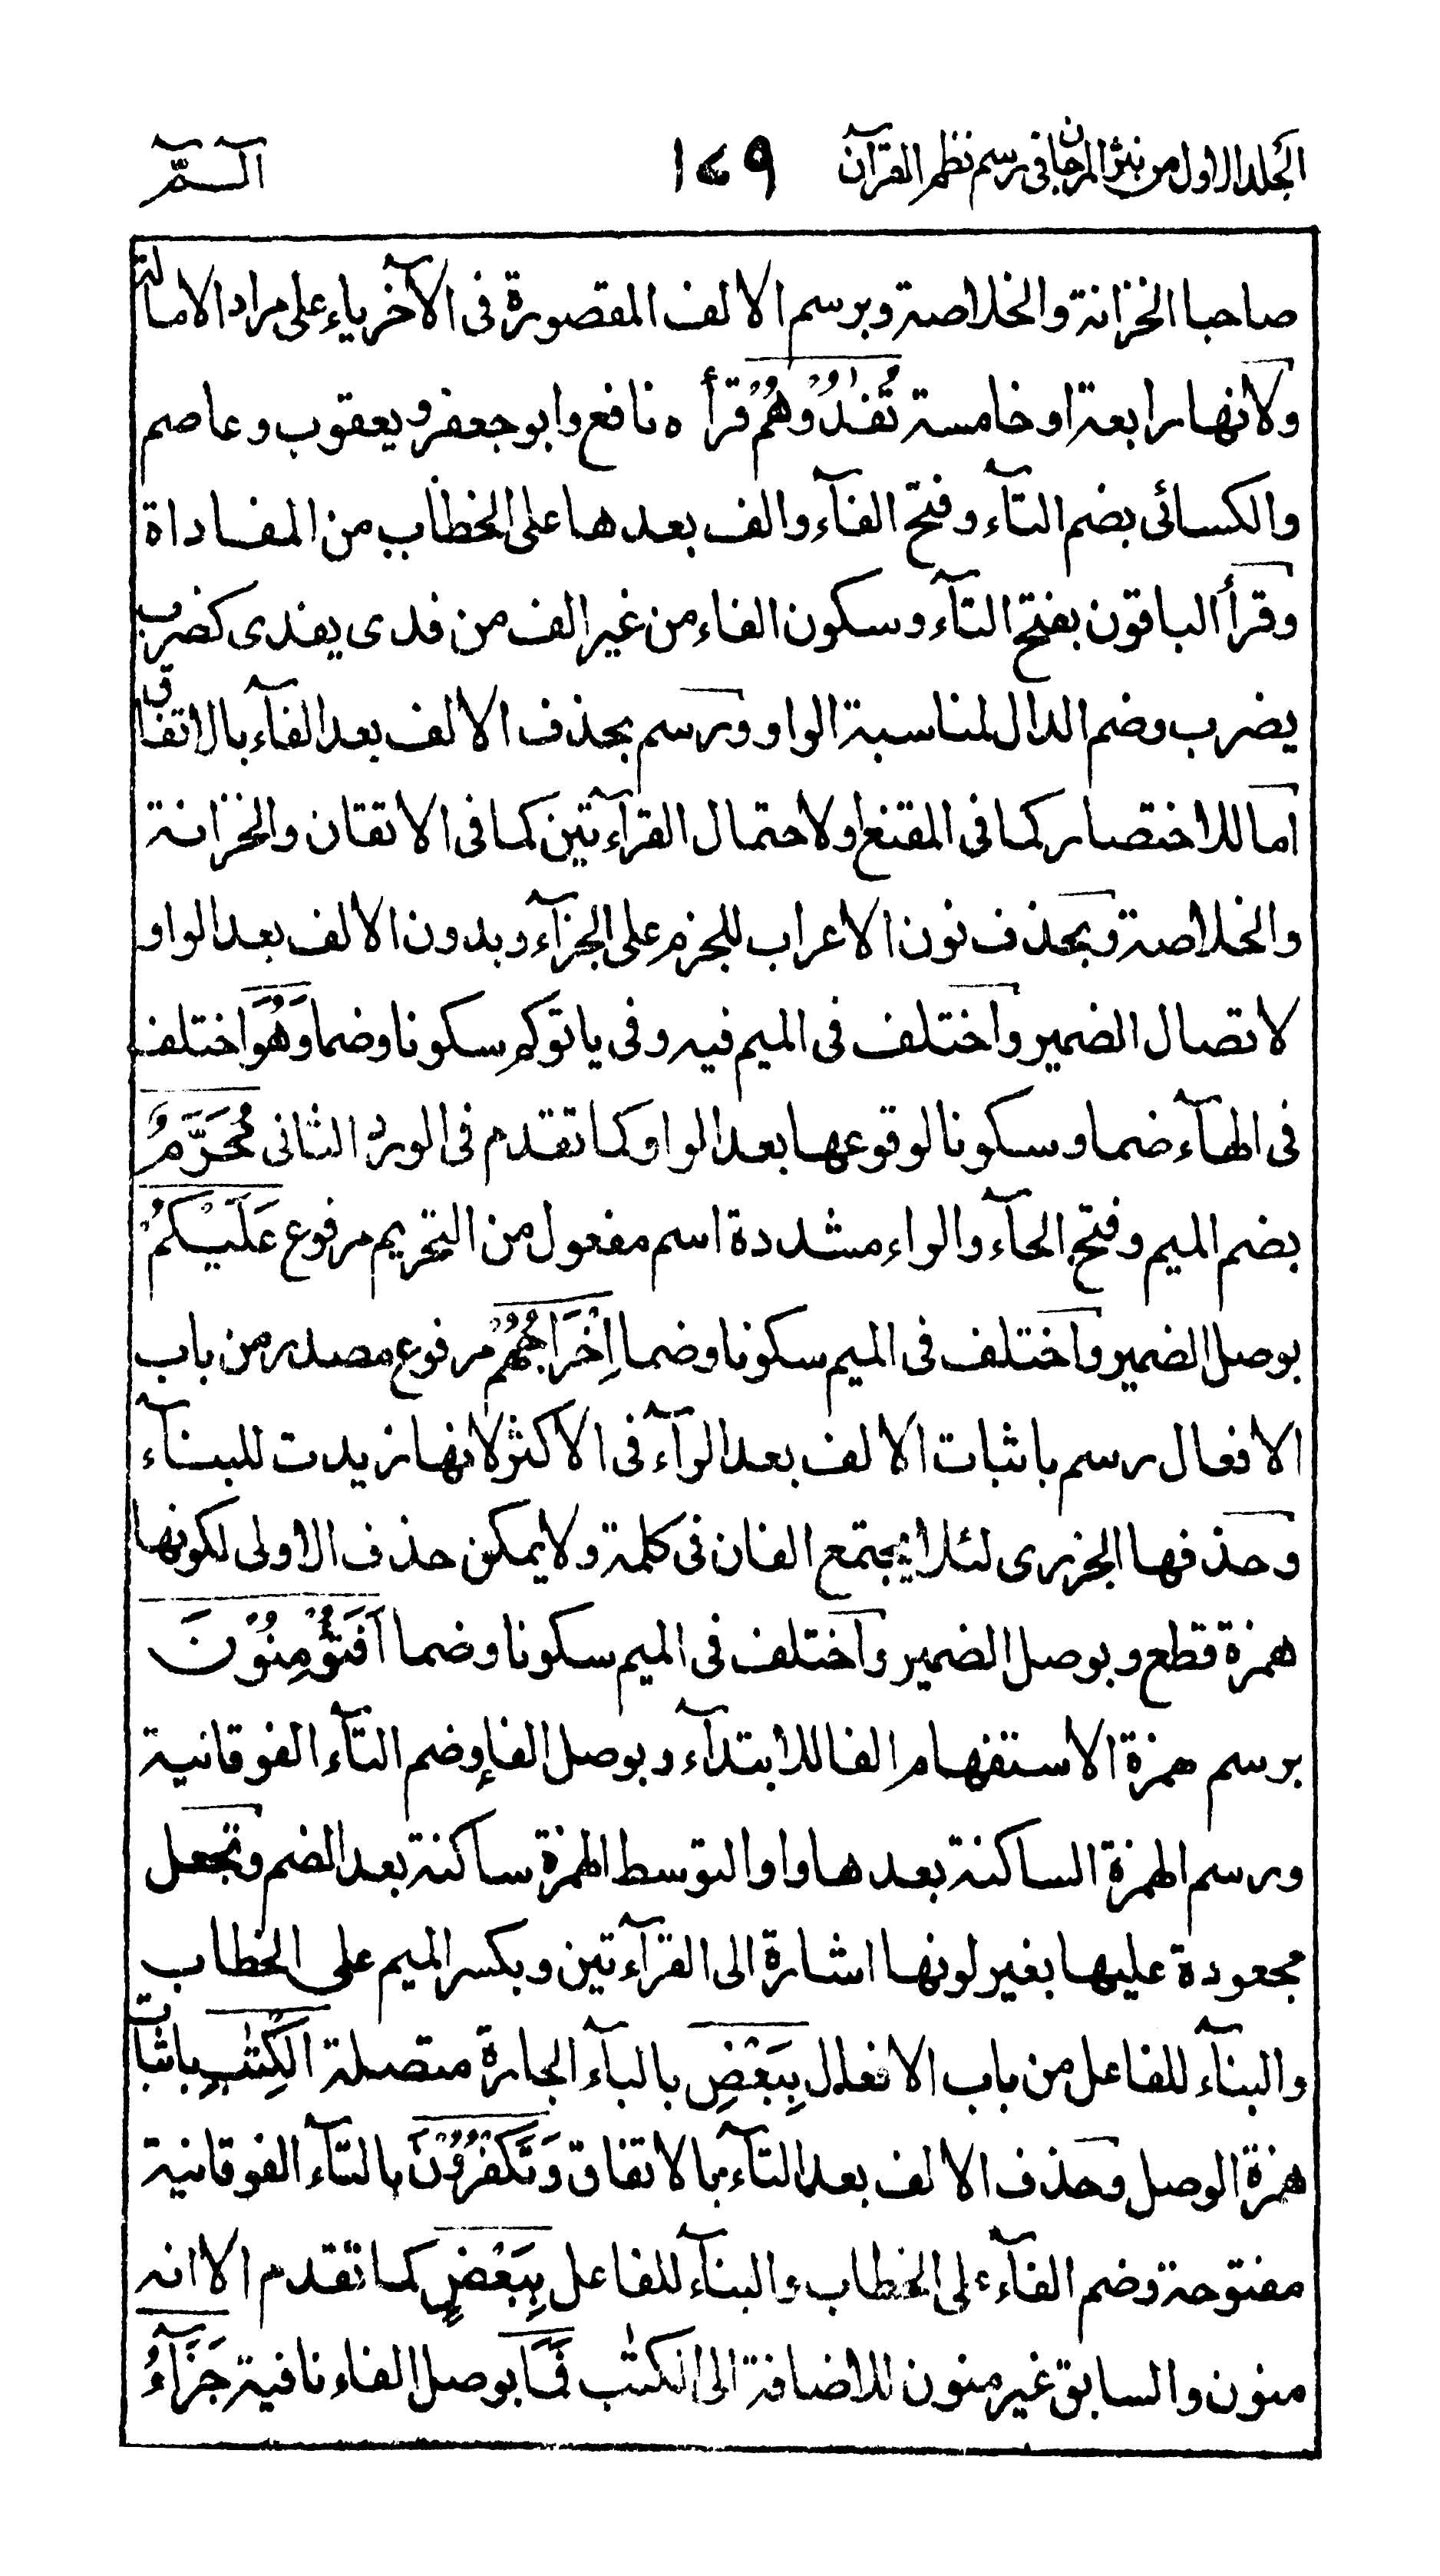 الجلد الاول من نثر المرجان فى رسم نظم القرآن ١٤٩ الٓـمّٓ
صاحبا الخزانة والخلاصة وبرسم الالف المقصورة فى الآخر ياء على مراد الامالة
ولانها رابعة او خامسة تُفٰدُوْهُمْ قرأه نافع وابو جعفر ويعقوب وعاصم
والكسائى بضم التآء وفتح الفآء والف بعدها على الخطاب من المفاداة
وقرأ الباقون بفتح التآء وسكون الفاء من غير الف من فدى يفدى كضرب
يضرب وضم الدال لمناسبة الواو ورسم بحذف الالف بعد الفآء بالاتفاق
اما للاختصار كما فى المقنع او لاحتمال القرآءتين كما فى الاتقان والخزانة
والخلاصة وبحذف نون الاعراب للجزم على الجزآء وبدون الالف بعد الواو
لاتصال الضمير واختلف فى الميم فيه وفى ياتوكم سكونا وضما وَهُوَ اختلف
فى الهآء ضما وسكونا لوقوعها بعد الواو كما تقدم فى الورد الثانى مُحَرَّمٌ
بضم الميم وفتح الحآء والراء مشددة اسم مفعول من التحريم مرفوع عَلَيْكُمْ
بوصل الضمير واختلف فى الميم سكونا وضما اِخْرَاجُهُمْ مرفوع مصدر من باب
الافعال رسم باثبات الالف بعد الرآء فى الاكثر لانها زيدت للبنآء
وحذفها الجزرى لئلا يجتمع الفان فى كلمة ولا يمكن حذف الاولى لكونها
همزة قطع وبوصل الضمير واختلف فى الميم سكونا وضما اَفَتُؤْمِنُوْنَ
برسم همزة الاستفهام الفا للابتدآء وبوصل الفاء وضم التآء الفوقانية
ورسم الهمزة الساكنة بعدها واوا لتوسط الهمزة ساكنة بعد الضم وتجعل
مجعودة عليها بغير لونها اشارة الى القرآءتين وبكسر الميم على الخطاب
والبنآء للفاعل من باب الافعال بِبَعْضِ بالبآء الجارة متصلة الْكِتٰبِ باثبات
همزة الوصل وحذف الالف بعد التآء بالاتفاق وَتَكْفُرُوْنَ بالتآء الفوقانية
مفتوحة وضم الفآء على الخطاب والبنآء للفاعل بِبَعْضٍ كما تقدم الا انه
منون والسابق غير منون للاضافة الى الكتٰب فَمَا بوصل الفاء نافية جَزَآءُ